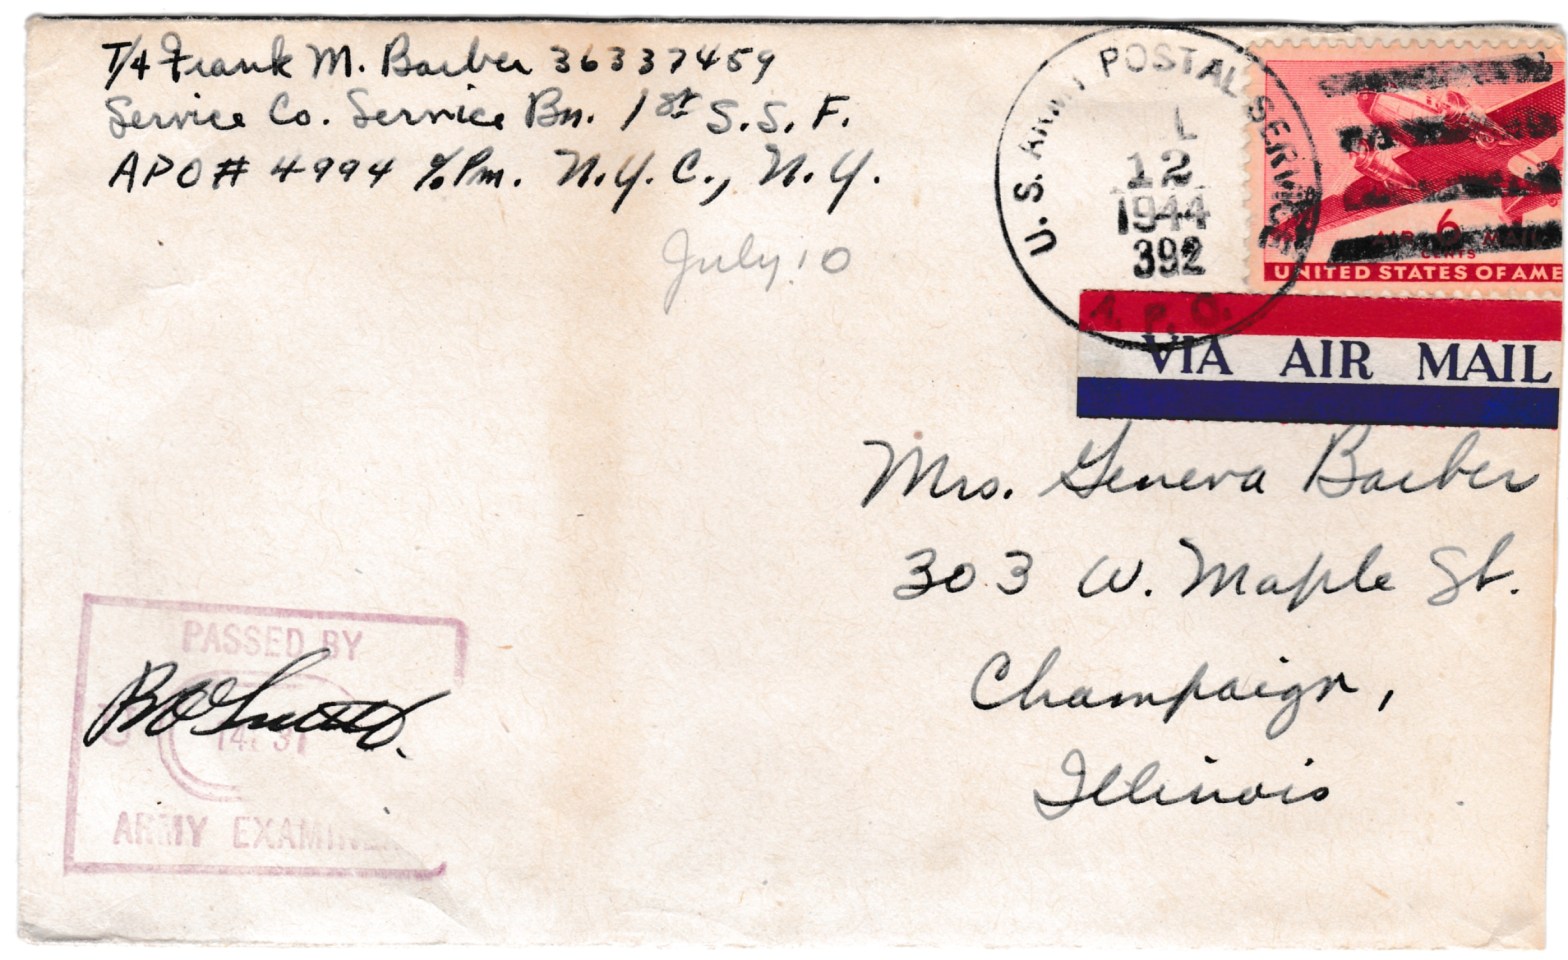 T/4 Frank M. Barber 36337459
Service Co. Service Bn. 1st S.S.F.
APO# 4994 c/o Pm. N.Y.C., N.Y.
July 10
U.S. ARMY POSTAL SERVICE
L
12
1944
392
A.P.O.
AIR 6 MAIL
CENTS
UNITED STATES OF AME
VIA AIR MAIL
Mrs. Geneva Barber
303 W. Maple St.
Champaign,
Illinois
PASSED BY
ARMY EXAMINE